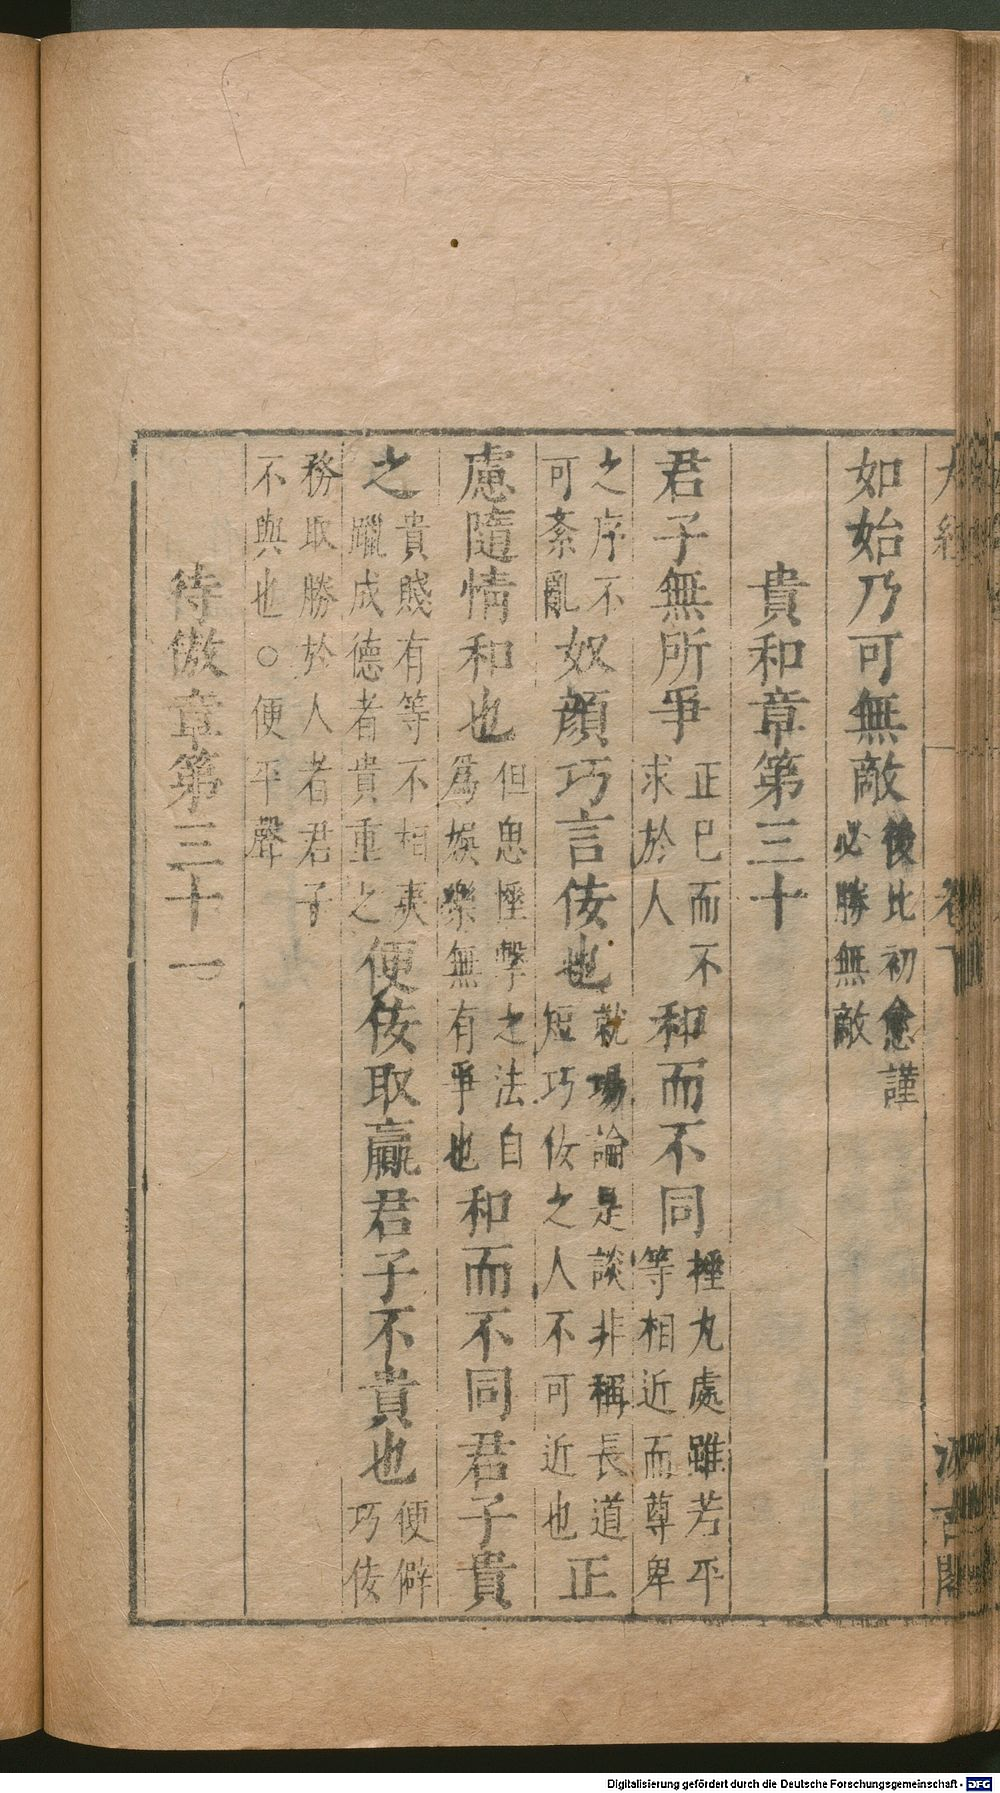 如始乃可無敵後比初愈謹必勝無敵
貴和章第三十
君子無所爭正已而不求於人和而不同捶丸處雖若平等相近而尊卑
之序不可紊亂奴顏巧言佞也就場論是談非稱長道短巧佞之人不可近也正
慮隨情和也但思捶擊之法自爲娛樂無有爭也和而不同君子貴
之貴賤有等不相夷躐成德者貴重之便佞取贏君子不貴也便僻巧佞
務取勝於人者君子不與也○便平聲
待傲章第三十一
Digitalisierung gefördert durch die Deutsche Forschungsgemeinschaft - DFG